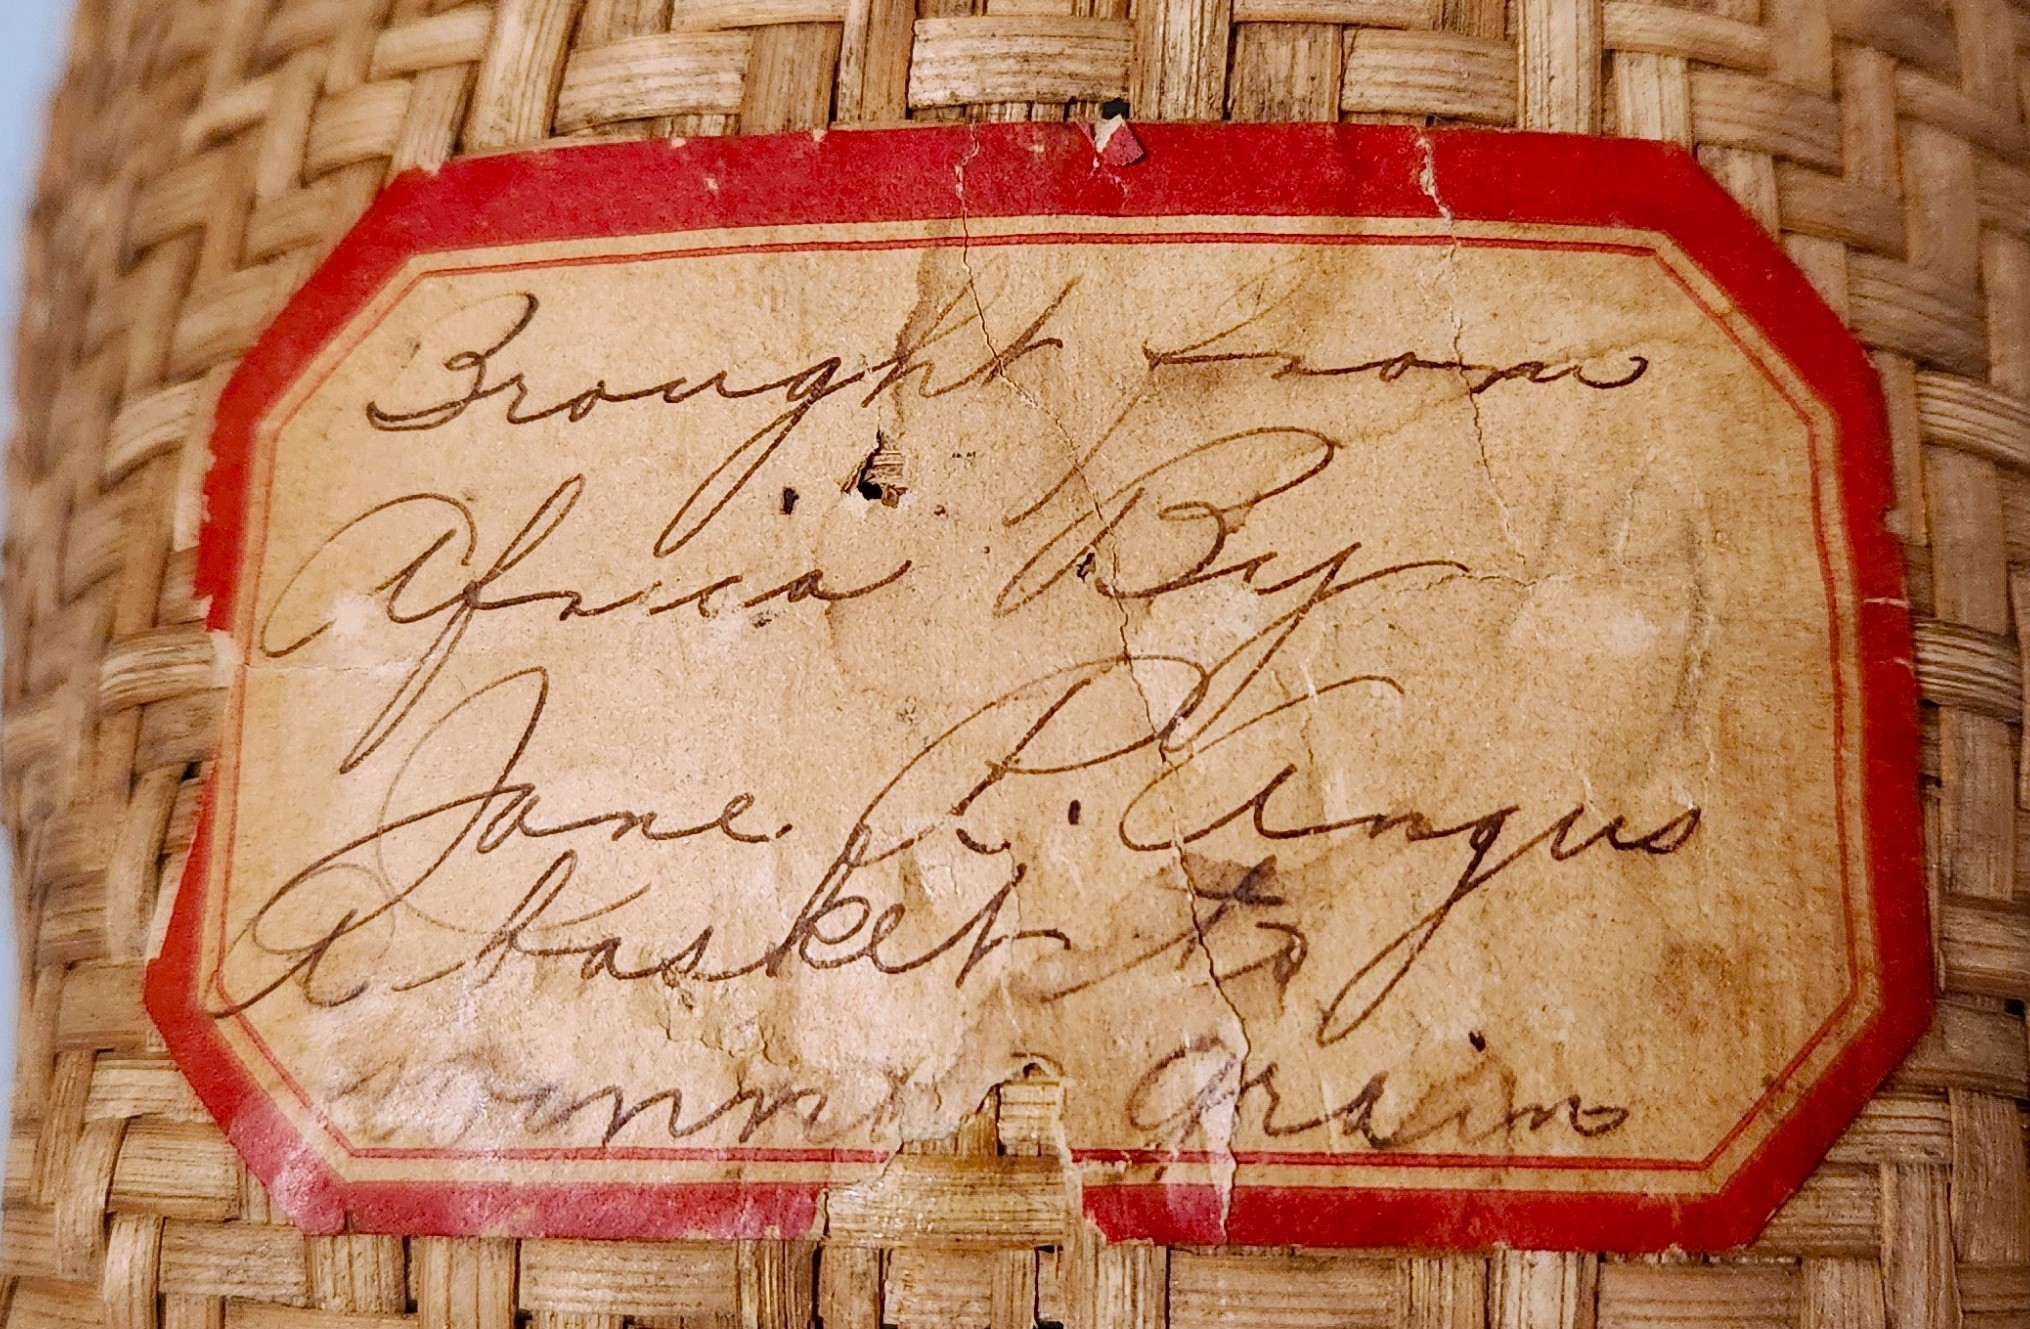 Brought from
Africa By
Jane R. Angus
A basket to
winnow grain